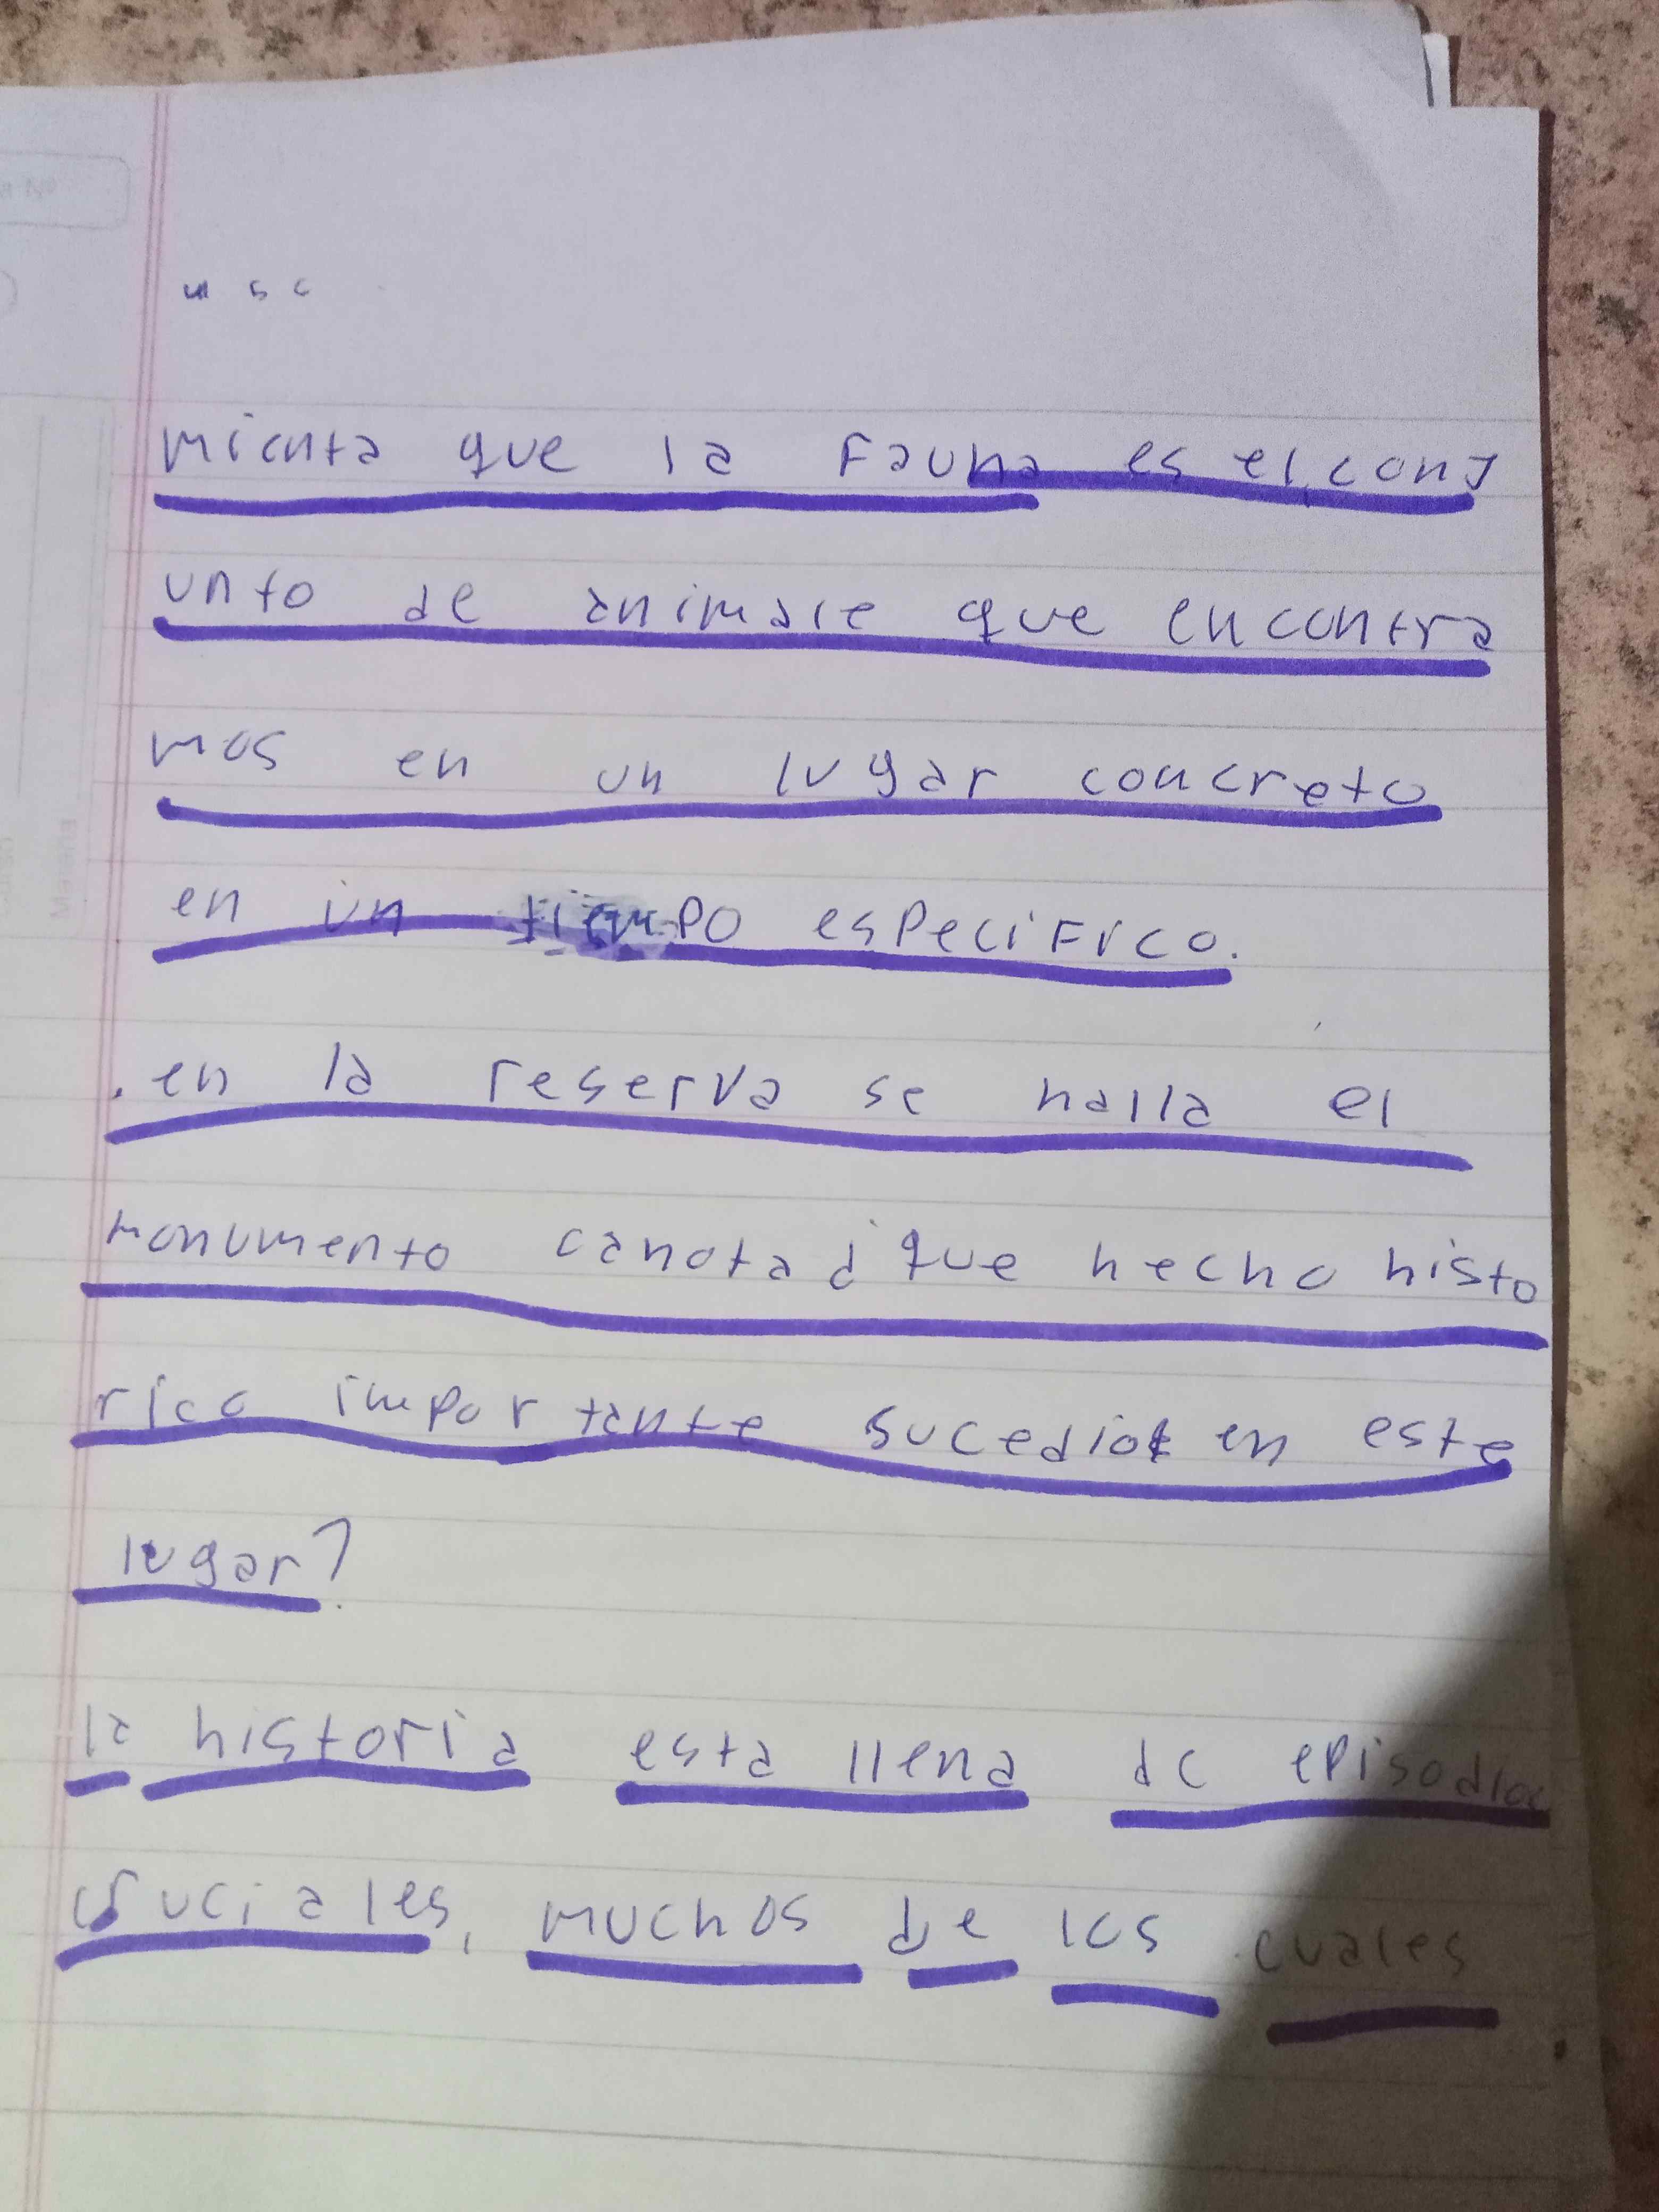 mienta que la Fauna es el conj
unto de animale que encontra
mos en un lugar concreto
en un tiempo especiFico.
. en la reserva se halla el
monumento canota ¿que hecho histo
rico importante sucedio en este
lugar?
la historia esta llena de episodios
cruciales, muchos de los cuales